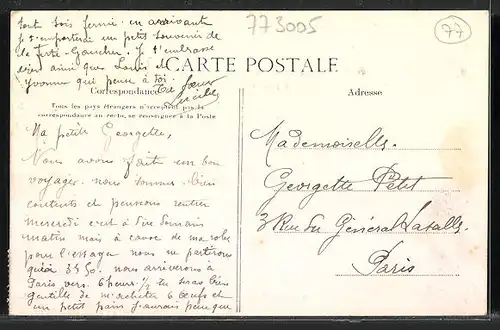 tout sois fermé. en arrivant
je t'emporterai un petit souvenir de
la Ferté-Gaucher. Je t'embrasse
bien ainsi que Louis et
Yvonne qui pense à toi.
Ta sœur
Lucile
773005
77
CARTE POSTALE
Correspondance
Tous les pays étrangers n'acceptent pas la
correspondance au recto, se renseigner à la Poste
Adresse
Ma petite Georgette,
Nous avons fait un bon
voyage. nous sommes bien
contents et pensons rentrer
mercredi c'est à dire demain
matin mais à cause de ma robe
pour l'essayage nous ne partirons
qu'à 3h50. nous arriverons à
Paris vers 6 heures 1/2 tu seras bien
gentille de m'acheter 6 œufs et
un petit pain j'aurais peur que
Mademoiselle
Georgette Petit
3 Rue du Général Lasalle.
Paris